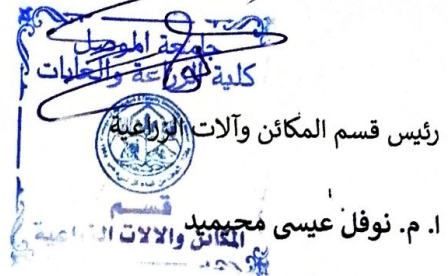 جامعة الموصل
كلية الزراعة والغابات
رئيس قسم المكائن وآلات الزراعية
ا. م. نوفل عيسى محيميد
قسم
المكائن والالات الزراعية